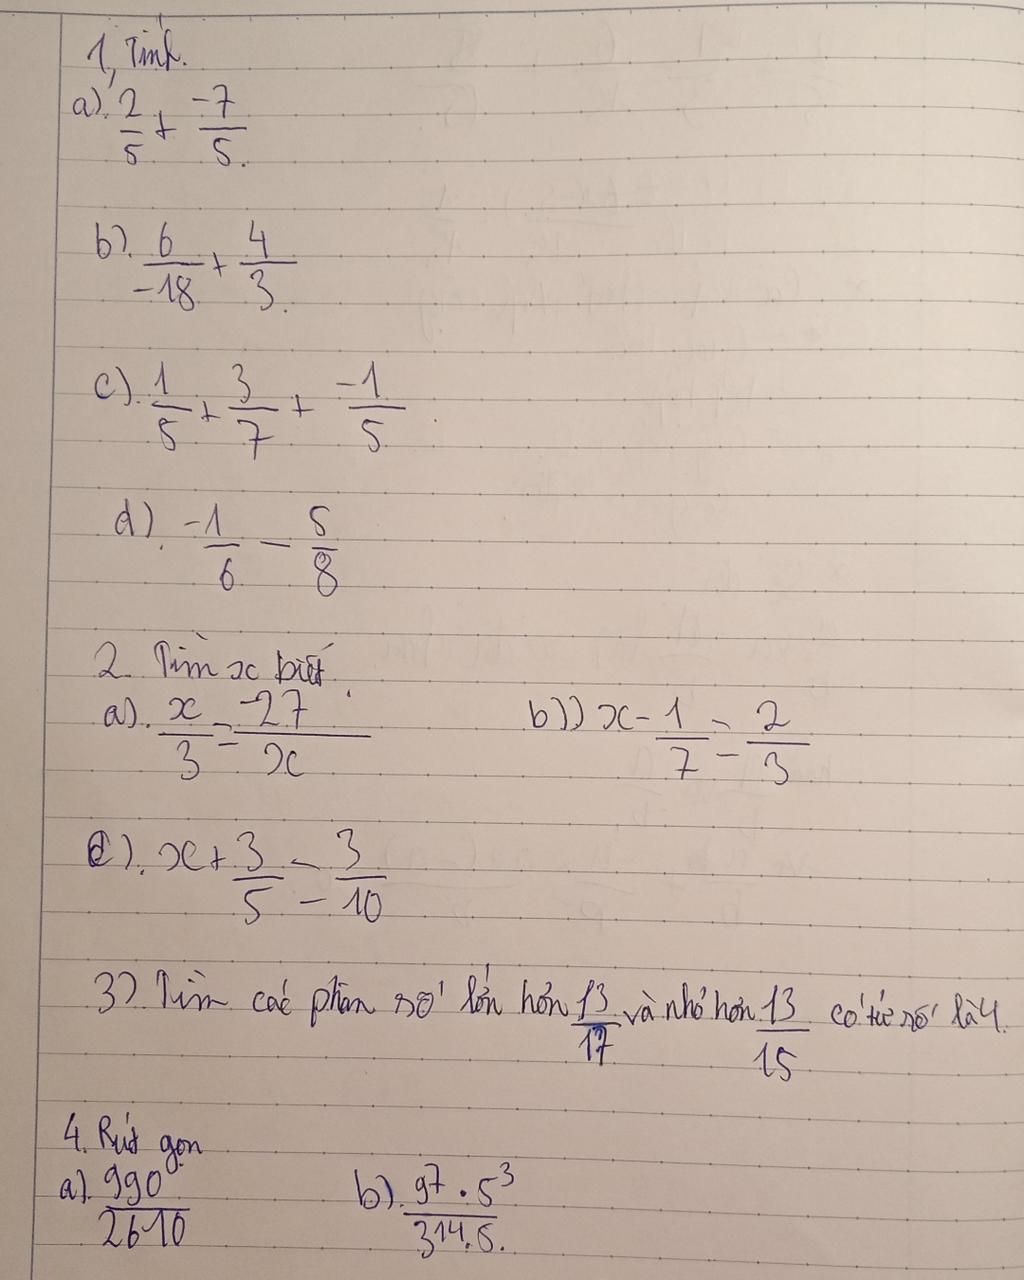 1, Tính.
a). 2/5 + -7/5.
b). 6/-18 + 4/3.
c). 1/5 + 3/7 + -1/5
d). -1/6 - 5/8
2. Tìm x biết.
a). x/3 = -27/x b)) x - 1/7 = 2/3
c). x + 3/5 = 3/10
3). Tìm các phân số lớn hơn 13/17 và nhỏ hơn 13/15 có tử số là 4.
4. Rút gọn
a). 990/2610 b). 9⁷ . 5³/3¹⁴.5.